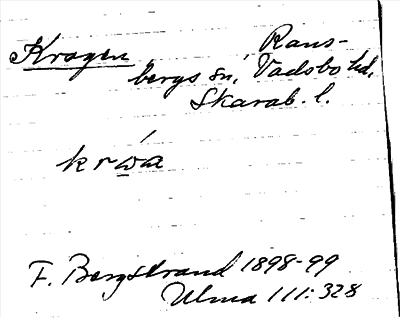 Kragen
Rans-
bergs sn, Vadsbo hd,
Skarab. l.
krwá̲a
F. Bergstrand 1898-99
Ulma 111:328